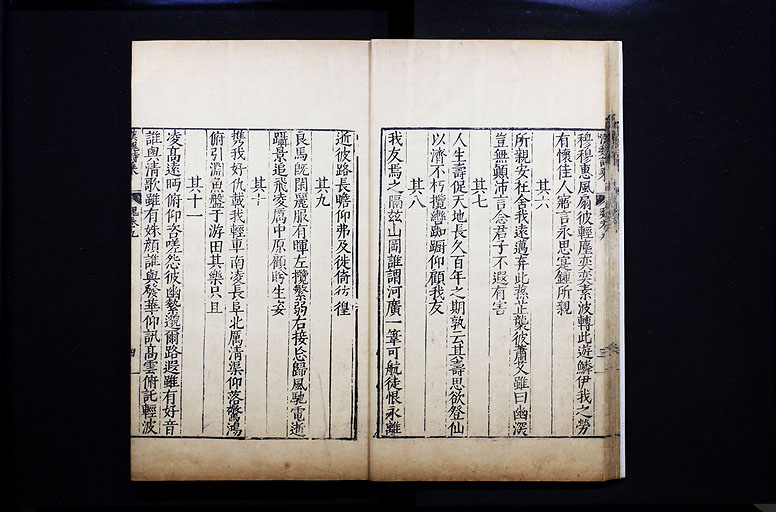 穆穆惠風扇彼輕塵奕奕素波轉此遊鱗伊我之勞
有懷佳人寤言永思寔鍾所親
其六
所親安在舍我遠邁棄此蓀芷襲彼蕭艾雖曰幽深
豈無顛沛言念君子不遐有害
其七
人生壽促天地長久百年之期孰云其壽思欲登仙
以濟不朽攬轡踟躕仰顧我友
其八
我友焉之隔茲山岡誰謂河廣一葦可航徒恨永離
逝彼路長瞻仰弗及徙倚彷徨
其九
良馬旣閑麗服有暉左攬繁弱右接忘歸風馳電逝
躡景追飛凌厲中原顧盼生姿
其十
携我好仇載我輕車南凌長阜北厲清渠仰落驚鴻
俯引淵魚盤于游田其樂只且
其十一
凌高遠眄俯仰咨嗟怨彼幽縶邈爾路遐雖有好音
誰與清歌雖有姝顏誰與發華仰訊高雲俯託輕波